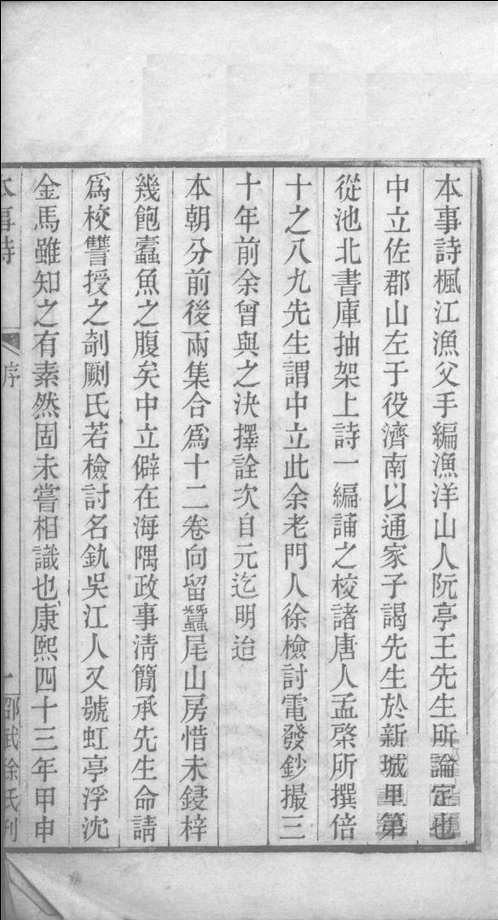 本事詩楓江漁父手編漁洋山人阮亭王先生所論定也
中立佐郡山左于役濟南以通家子謁先生於新城里第
從池北書庫抽架上詩一編誦之校諸唐人孟棨所撰倍
十之八九先生謂中立此余老門人徐檢討電發鈔撮三
十年前余曾與之決擇詮次自元迄明迨
本朝分前後兩集合爲十二卷向留蠶尾山房惜未鋟梓
幾飽蠹魚之腹矣中立僻在海隅政事淸簡承先生命請
爲校讐授之剞劂氏若檢討名釚吳江人又號虹亭浮沈
金馬雖知之有素然固未嘗相識也康熙四十三年甲申
本事詩 序 一 邵武徐氏刊